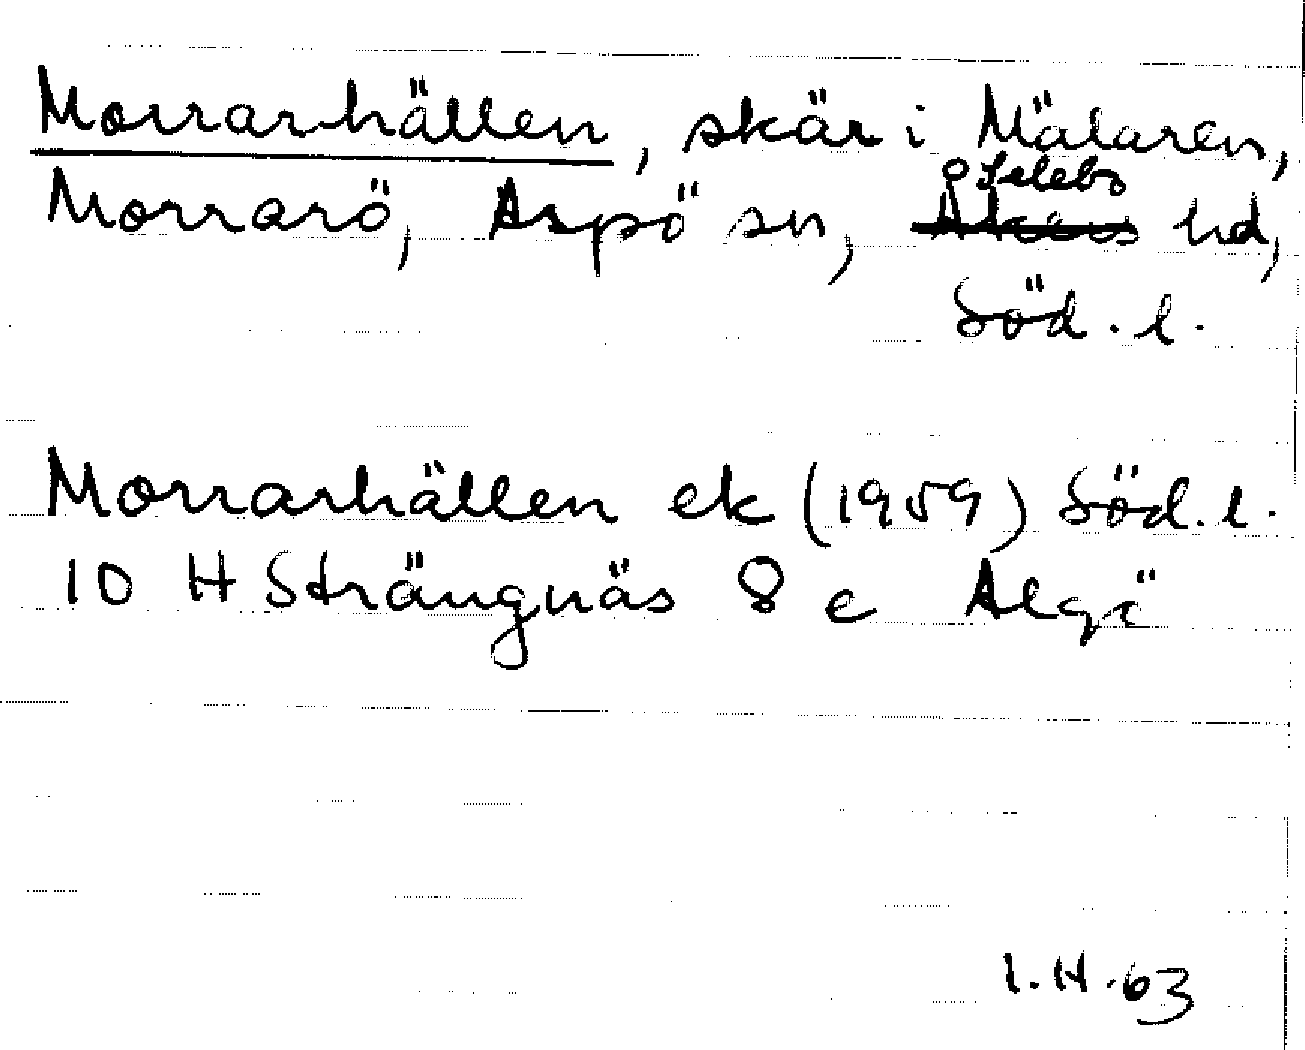 Morrarhällen, skär i Mälaren,
Morrarö, Aspö sn, Selebo hd,
Söd. l.
Morrarhällen ek (1959) Söd. l.
10 H Strängnäs 8 e Algö
I. H. 63